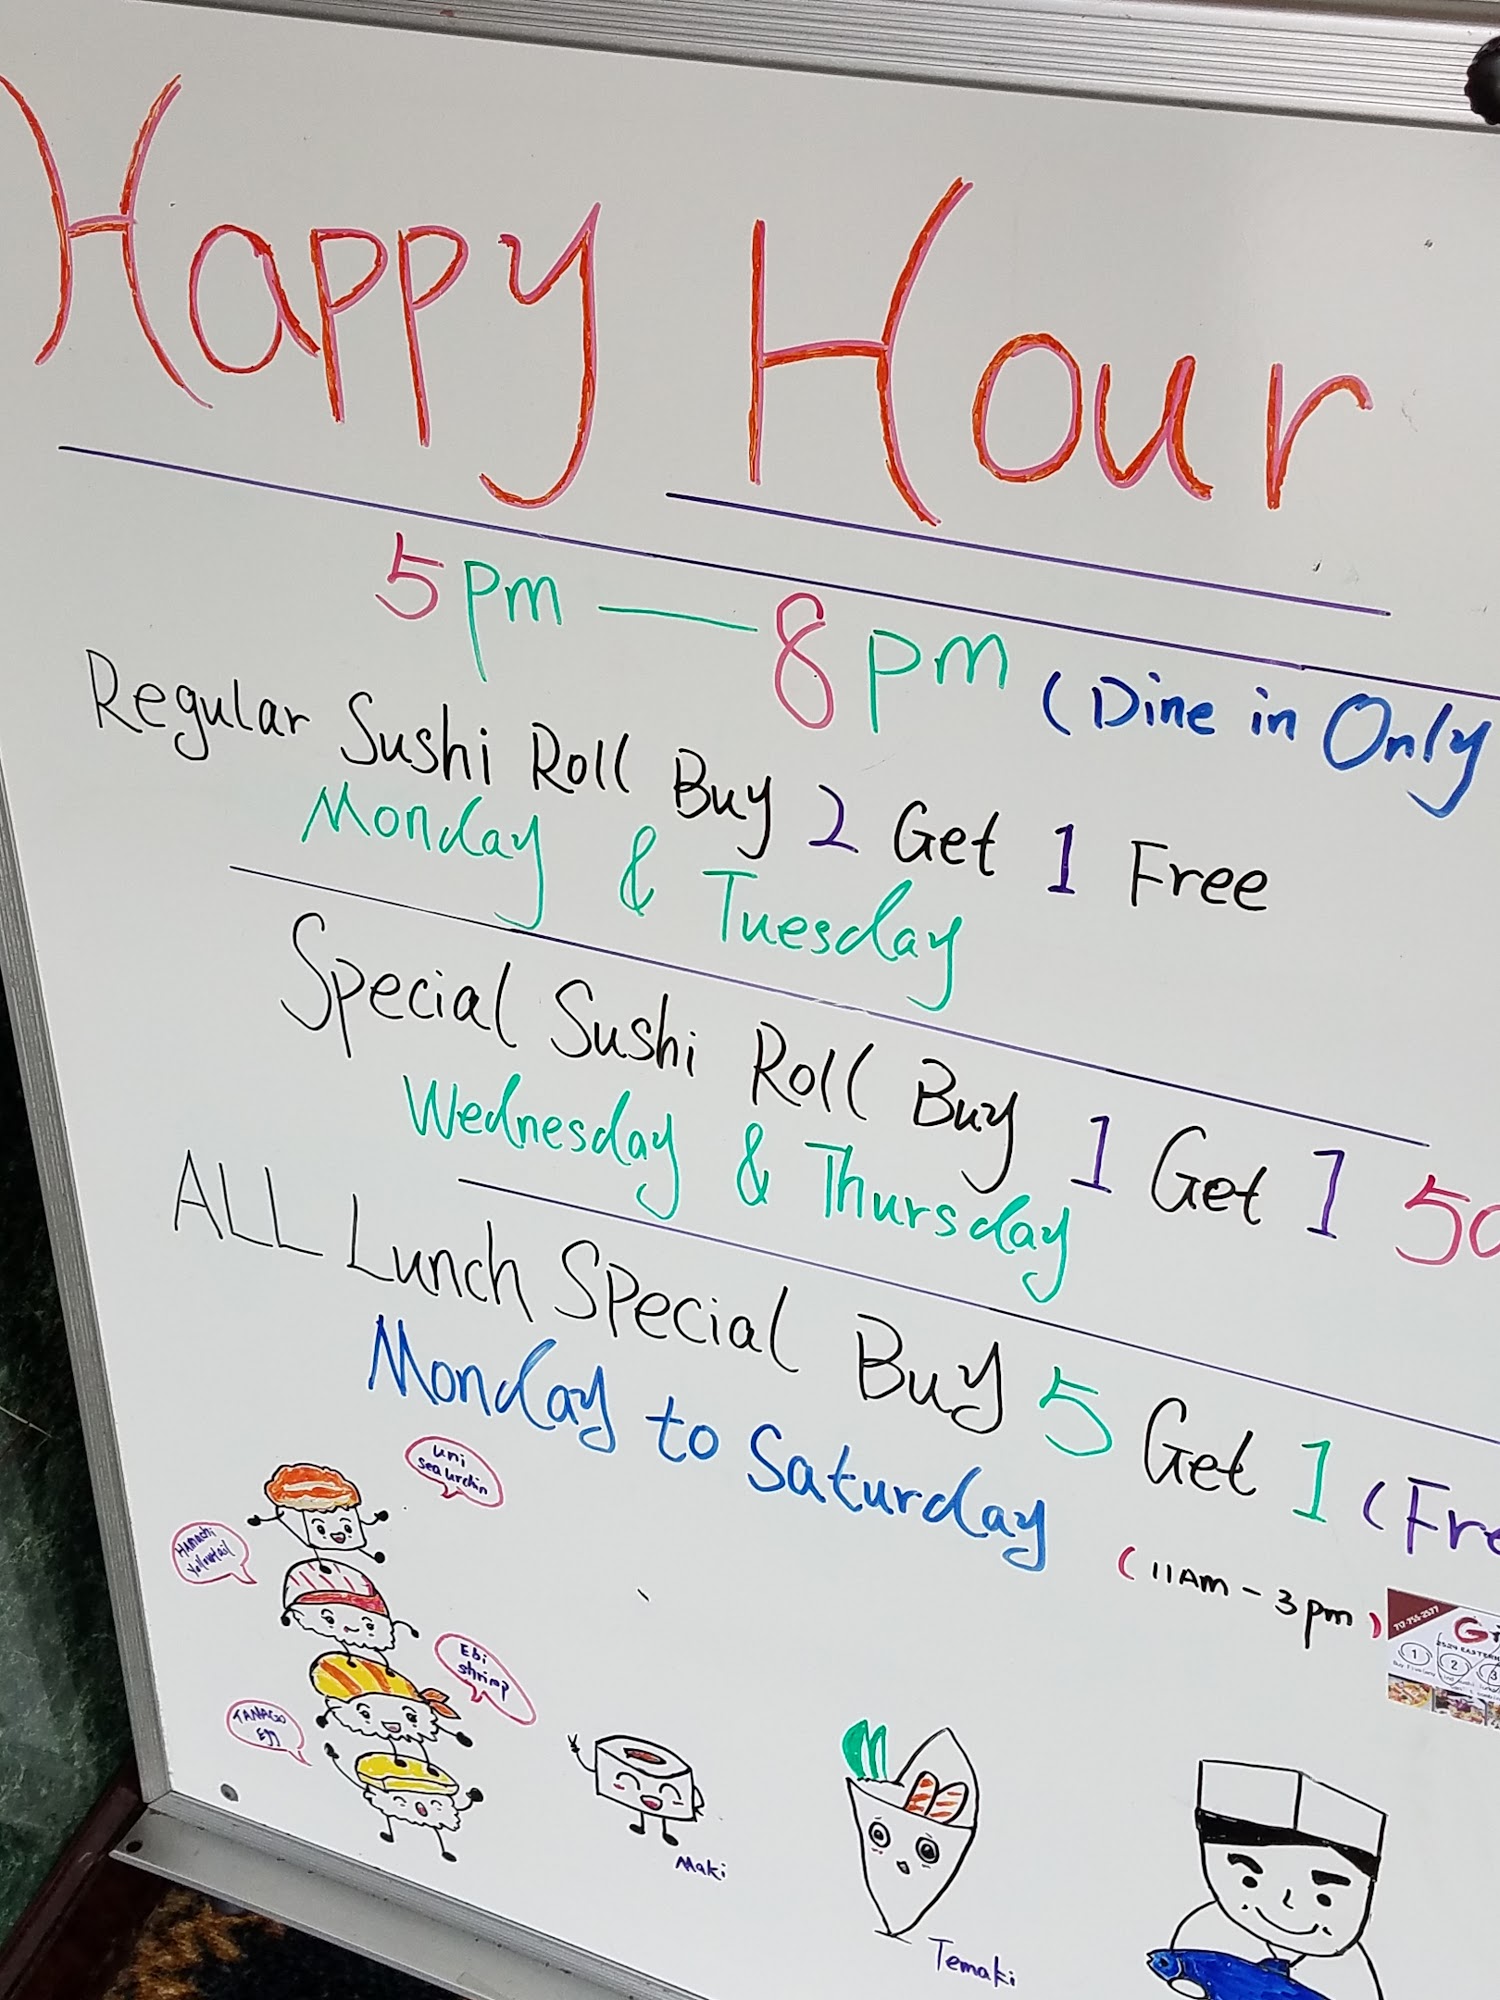 Happy Hour
5pm — 8pm (Dine in Only
Regular Sushi Roll Buy 2 Get 1 Free
Monday & Tuesday
Special Sushi Roll Buy 1 Get 1 50
Wednesday & Thursday
ALL Lunch Special Buy 5 Get 1 (Fre
Monday to Saturday
(11AM - 3pm)
uni
sea urchin
Hamachi
Yellowtail
Ebi
shrimp
TANAGO
Egg
Maki
Temaki
712-755-2577
G
2524 EASTERN
1 2 3